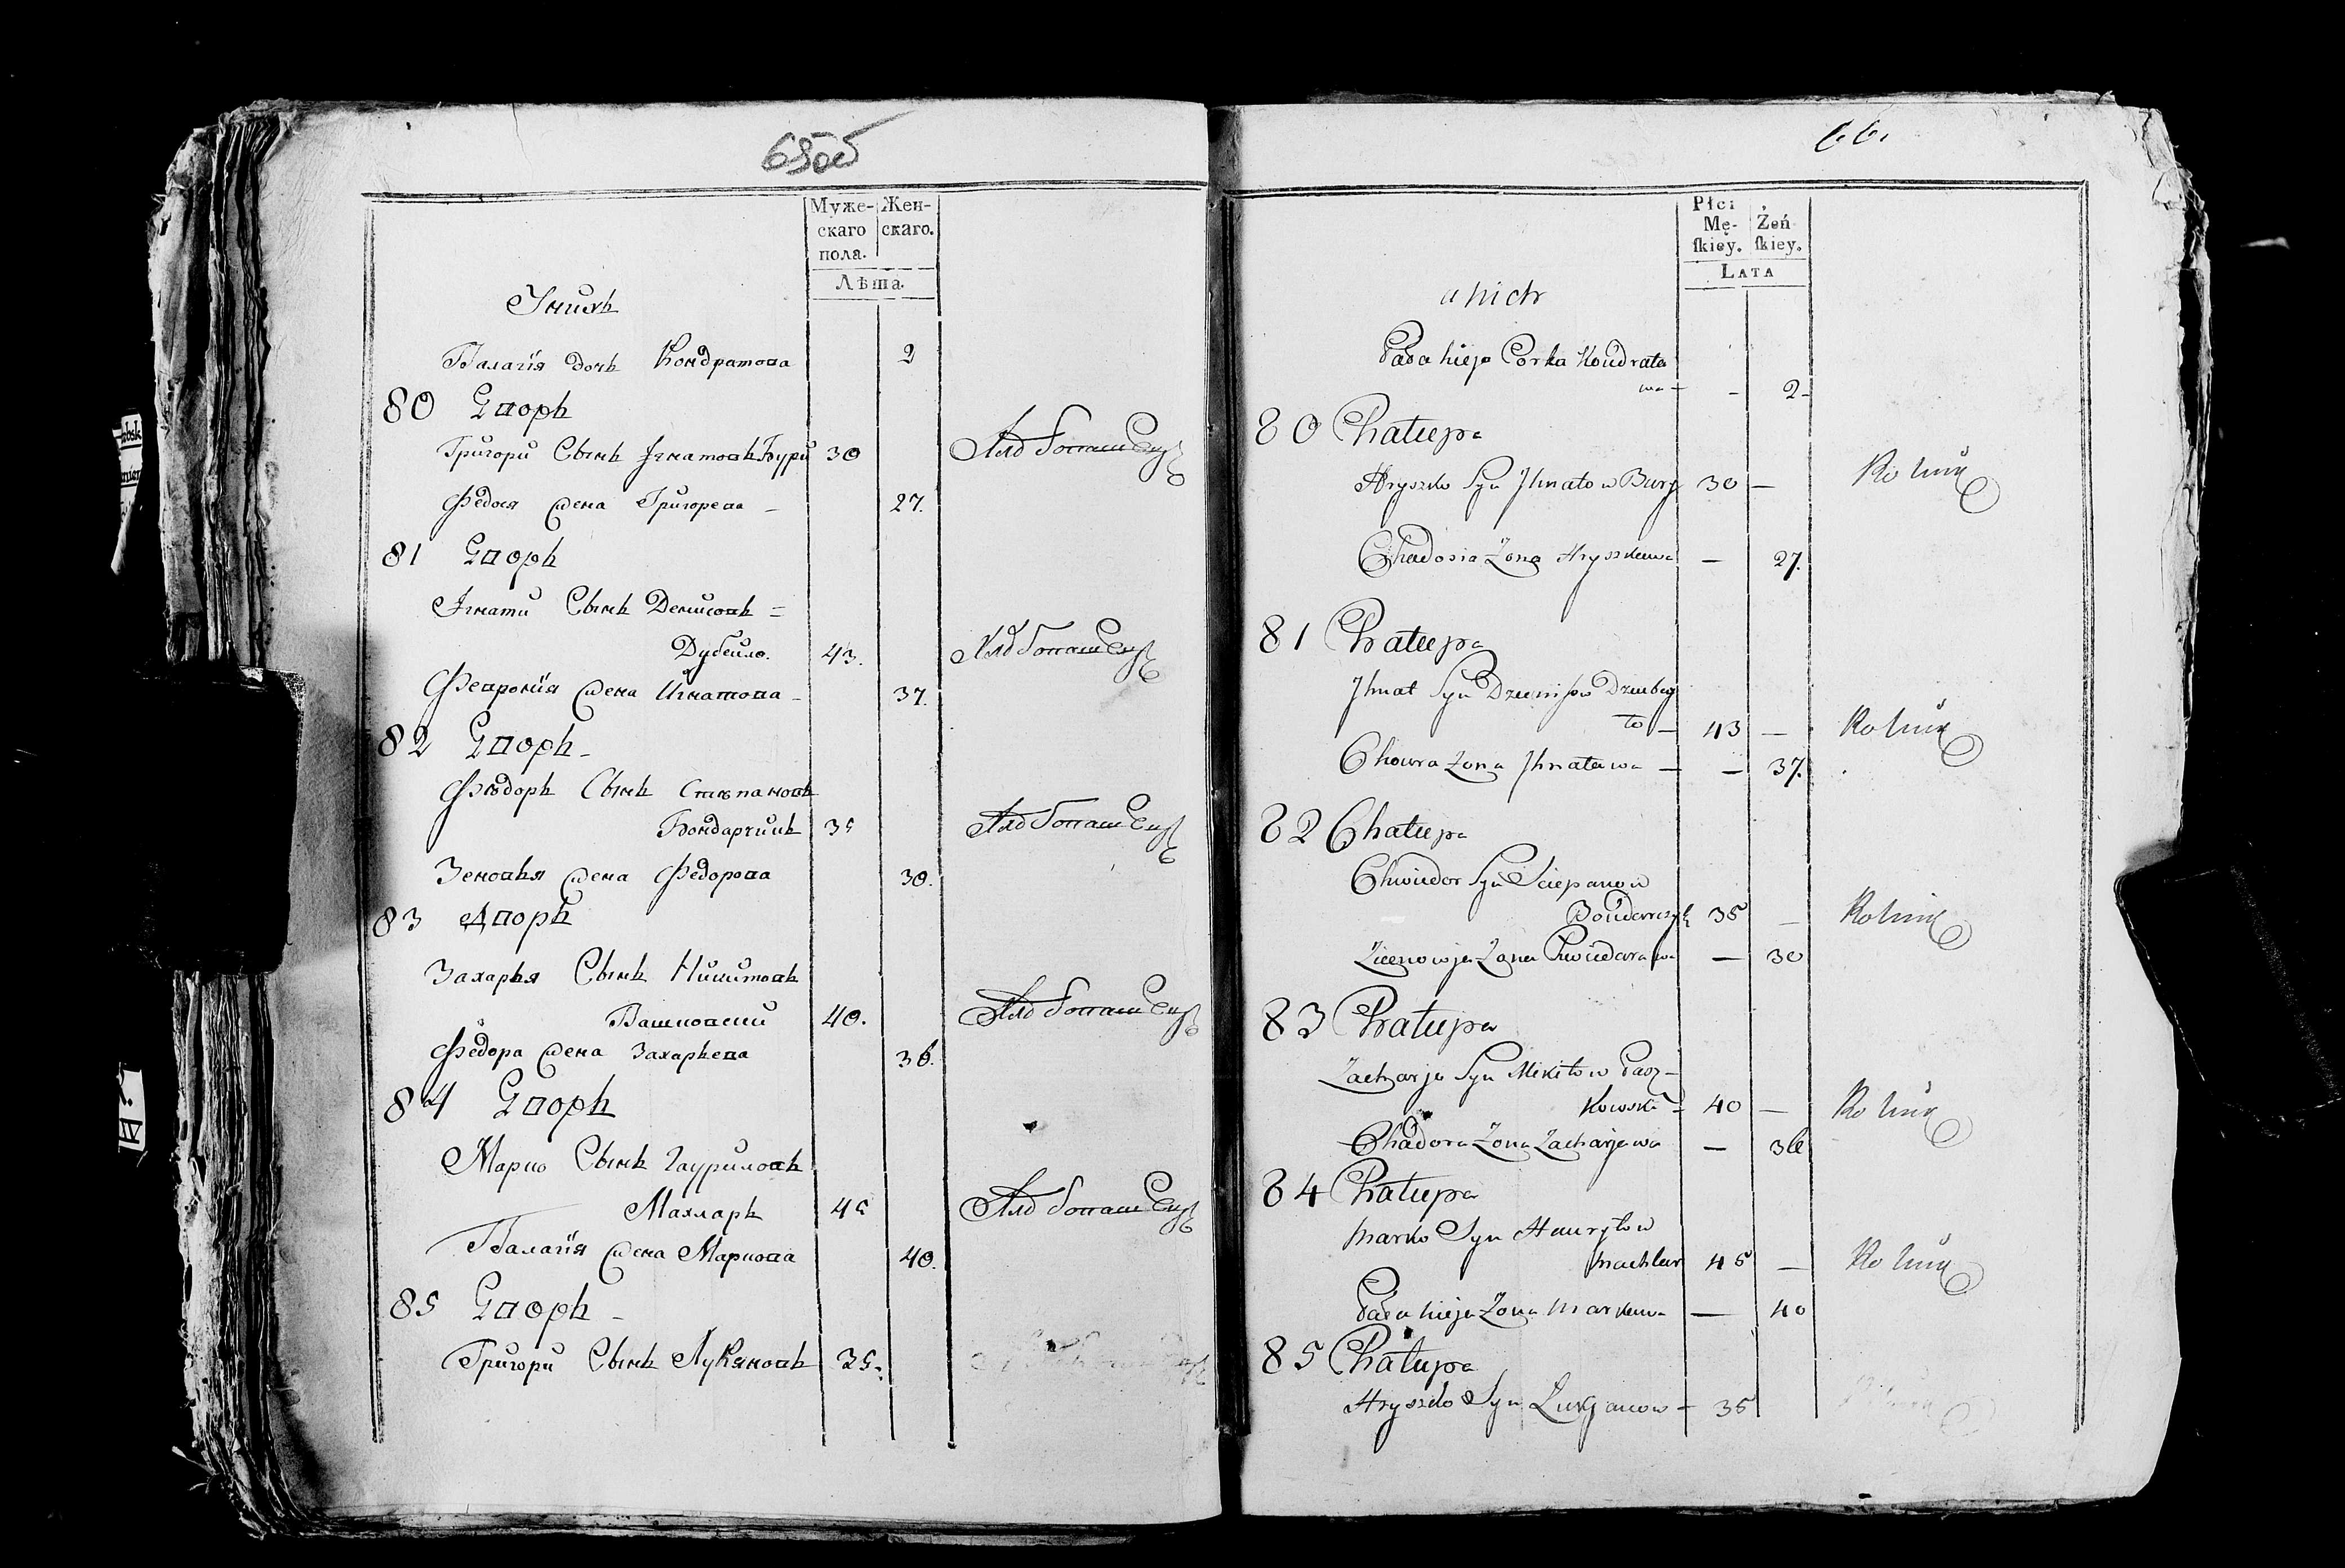 65об
Муже-
скаго
пола.
Жен-
скаго.
Лѣта.
Унихъ
Палагія дочь Кондратова 2
80 Дворъ
Григори Сынъ Игнатовъ Бури 30
Хлѣбопашецъ
Федося жена Григорева - 27.
81 Дворъ
Игнати Сынъ Денисовъ =
Дубейло. 43. Хлѣбопашецъ
Февронія жена Игнатова - 37.
82 Дворъ -
Фѣдоръ Сынъ Стѣпановъ
Бондарчикъ 35 Хлѣбопашецъ
Зеновья жена Федорова 30.
83 Дворъ
Захарья Сынъ Никитовъ
Пашковский 40. Хлѣбопашецъ
Федора жена Захарьева 36.
84 Дворъ
Марко Сынъ Гауриловъ
Махларъ 45 Хлѣбопашецъ
Палагія жена Маркова 40.
85 Дворъ -
Григори Сынъ Лукяновъ 35.
66.
Płci
Mę-
skiey.
Żeń
skiey.
Lata
u nich
Pałahieja Corka Kondrata
wa - - 2-
80 Chałupa
Hryszko Syn Jhnatow Bury 30 — Rolnik
Chadosia Zona Hryszkowa — 27.
81 Chałupa
Jhnat Syn Dzienisow Dziubey
ło - 43 — Rolnik
Chowra Zona Jhnatowa — - 37.
82 Chałupa
Chwiedor Syn Sciepanow
Bondarczyk 35 — Rolnik
Zienowja Zona Chwiedorowa — 30
83 Chałupa
Zacharja Syn Mikitow Pasz-
kowski - 40 — Rolnik
Chadora Zona Zacharjewa — 36
84 Chałupa
Marko Syn Hauryłow
Machlar 45 — Rolnik
Pałahieja Zona Markowa — 40
85 Chałupa
Hryszko Syn Łukjanow - 35